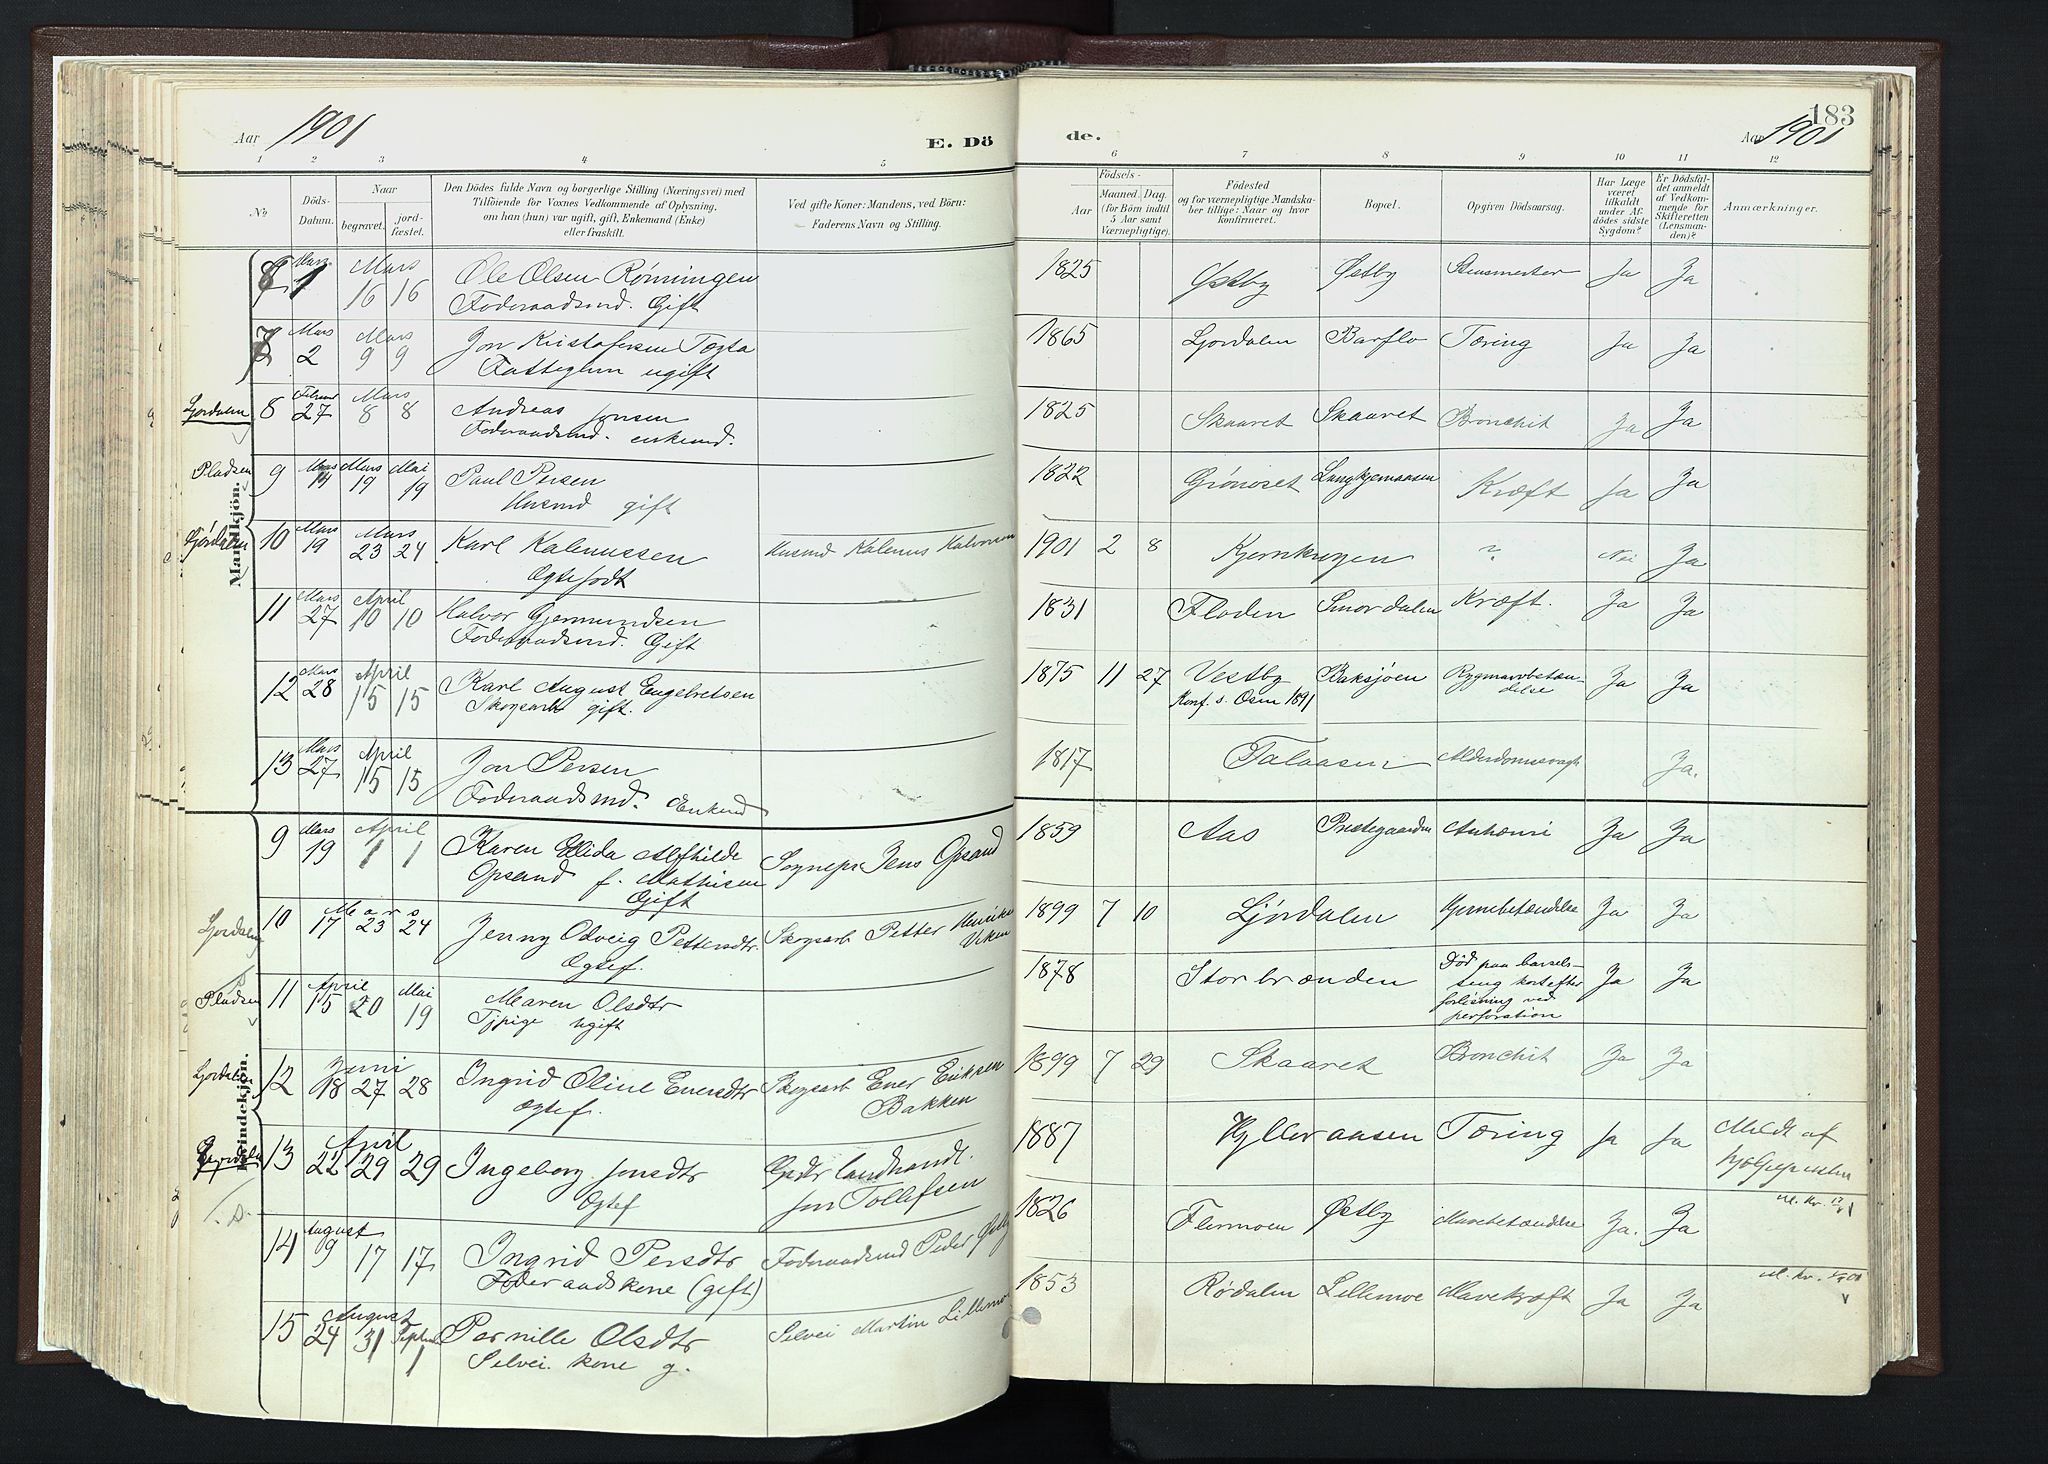 Aar 1901
E. Dö
de.
Aar 1901
183
1 2 3 4 5
6 7 8 9 10 11 12
No
Döds-
Datum.
Naar
begravet.
jord-
fæstet.
Den Dödes fulde Navn og borgerlige Stilling (Næringsvei) med
Tilföiende for Voxnes Vedkommende af Oplysning,
om han (hun) var ugift, gift, Enkemand (Enke)
eller fraskilt.
Ved gifte Koner: Mandens, ved Börn:
Faderens Navn og Stilling.
Födsels-
Aar
Maaned. Dag.
(for Börn indtil
5 Aar samt
Værnepligtige).
Födested
og for værnepligtige Mandska-
ber tillige: Naar og hvor
konfirmeret.
Bopæl.
Opgiven Dödsaarsag.
Har Læge
været
tilkaldt
under Af-
dödes sidste
Sygdom?
Er Dödsfal-
det anmeldt
af Vedkom-
mende for
Skifteretten
(Lensman-
den)?
Anmærkninger.
Mandkjön.
Mars 1 Mars 16 16 Ole Olsen Rønningen 1825 Østby Østby Ja Ja
Föderaadsmd. Gift
7 Mars 2 Mars 9 9 Jon Kristofersen Tøgta 1865 Ljordalen Barflo Tæring Ja Ja
ugift
Ljordalen 8 Februar 27 Mars 8 8 Andreas Jonsen 1825 Skaaret Skaaret Bronchit Ja Ja
Föderaadsmd. enkemd.
Pladsen 9 Mars 14 Mars 19 Mai 19 Paul Persen 1822 Grønoset Langkjernaasen Kræft Ja Ja
Husmd gift
Ljørdalen 10 Mars 19 Mars 23 24 Karl Kalenussen Husmd Kalenus Halvorsen 1901 2 8 Kjernhaugen ? Nei Ja
Ægtefødt
11 Mars 27 April 10 10 Halvor Gjermundsen 1831 Floden Smordalen Kræft. Ja Ja
Föderaadsmd. Gift
12 Mars 28 April 15 15 Karl August Engebretsen 1875 11 27 Vestby Baksjøen Rygmarvbetæn- Ja Ja
Skogsarb gift. Konf. i Osen 1891 delse
13 Mars 27 April 15 15 Jon Persen 1817 Falaasen Alderdomssvagh Ja.
Föderaadsmd. Enkemd
Kvindekjön.
9 Mars 19 April 1 1 Karen Elida Alfhilde Sognepr Jens Opsand 1859 Aas Prestegaarden Ja Ja
Opsand f. Mathisen
Gift
Ljordalen 10 17 Mars 23 24 Jenny Odveig Pettersdtr. Skogsarb Petter Henriksen 1899 7 10 Ljørdalen Hjernebetændelse Ja Ja
Ægtef. Viken
Pladsen 11 April 15 20 Mai 19 Maren Olsdtr 1878 Storbrænden Død paa barsel- Ja Ja
Tjpige ugift seng kort efter
forløsning ved
perforation
Ljordalen 12 Juni 18 27 28 Ingrid Oline Enersdtr Skogsarb Ener Eriksen 1899 7 29 Skaaret Bronchit Ja Ja
Ægtef. Bakken
13 April 22 29 29 Ingeborg Jonsdtr landhandl. 1887 Hylleraasen Tæring Ja Ja Meldt af
Ægtef Jon Tollefsen
14 August 9 17 17 Ingrid Persdtr Föderaadsmd Peder Østby 1826 Flermoen Østby Mavebetændelse Ja. Ja
Föderaadskone (gift)
15 August 24 31 Septbr 1 Pernille Olsdtr Selvei Martin Lillemo 1853 Rødalen Lillemoe Mavekræft Ja Ja
Selvei. kone g.